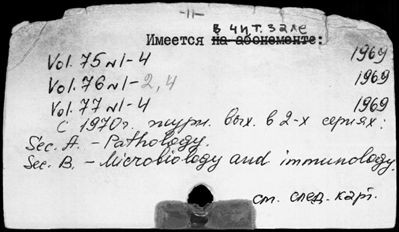 -11-
в чит. зале
Имеется на абонементе:
Vol. 75 №1-4 1969
Vol. 76 №1-2,4 1969
Vol. 77 №1-4 1969
С 1970г. журн. вых. в 2-х сериях:
Sec. A. - Pathology.
Sec. B. - Microbiology and immunology.
см. след. карт.